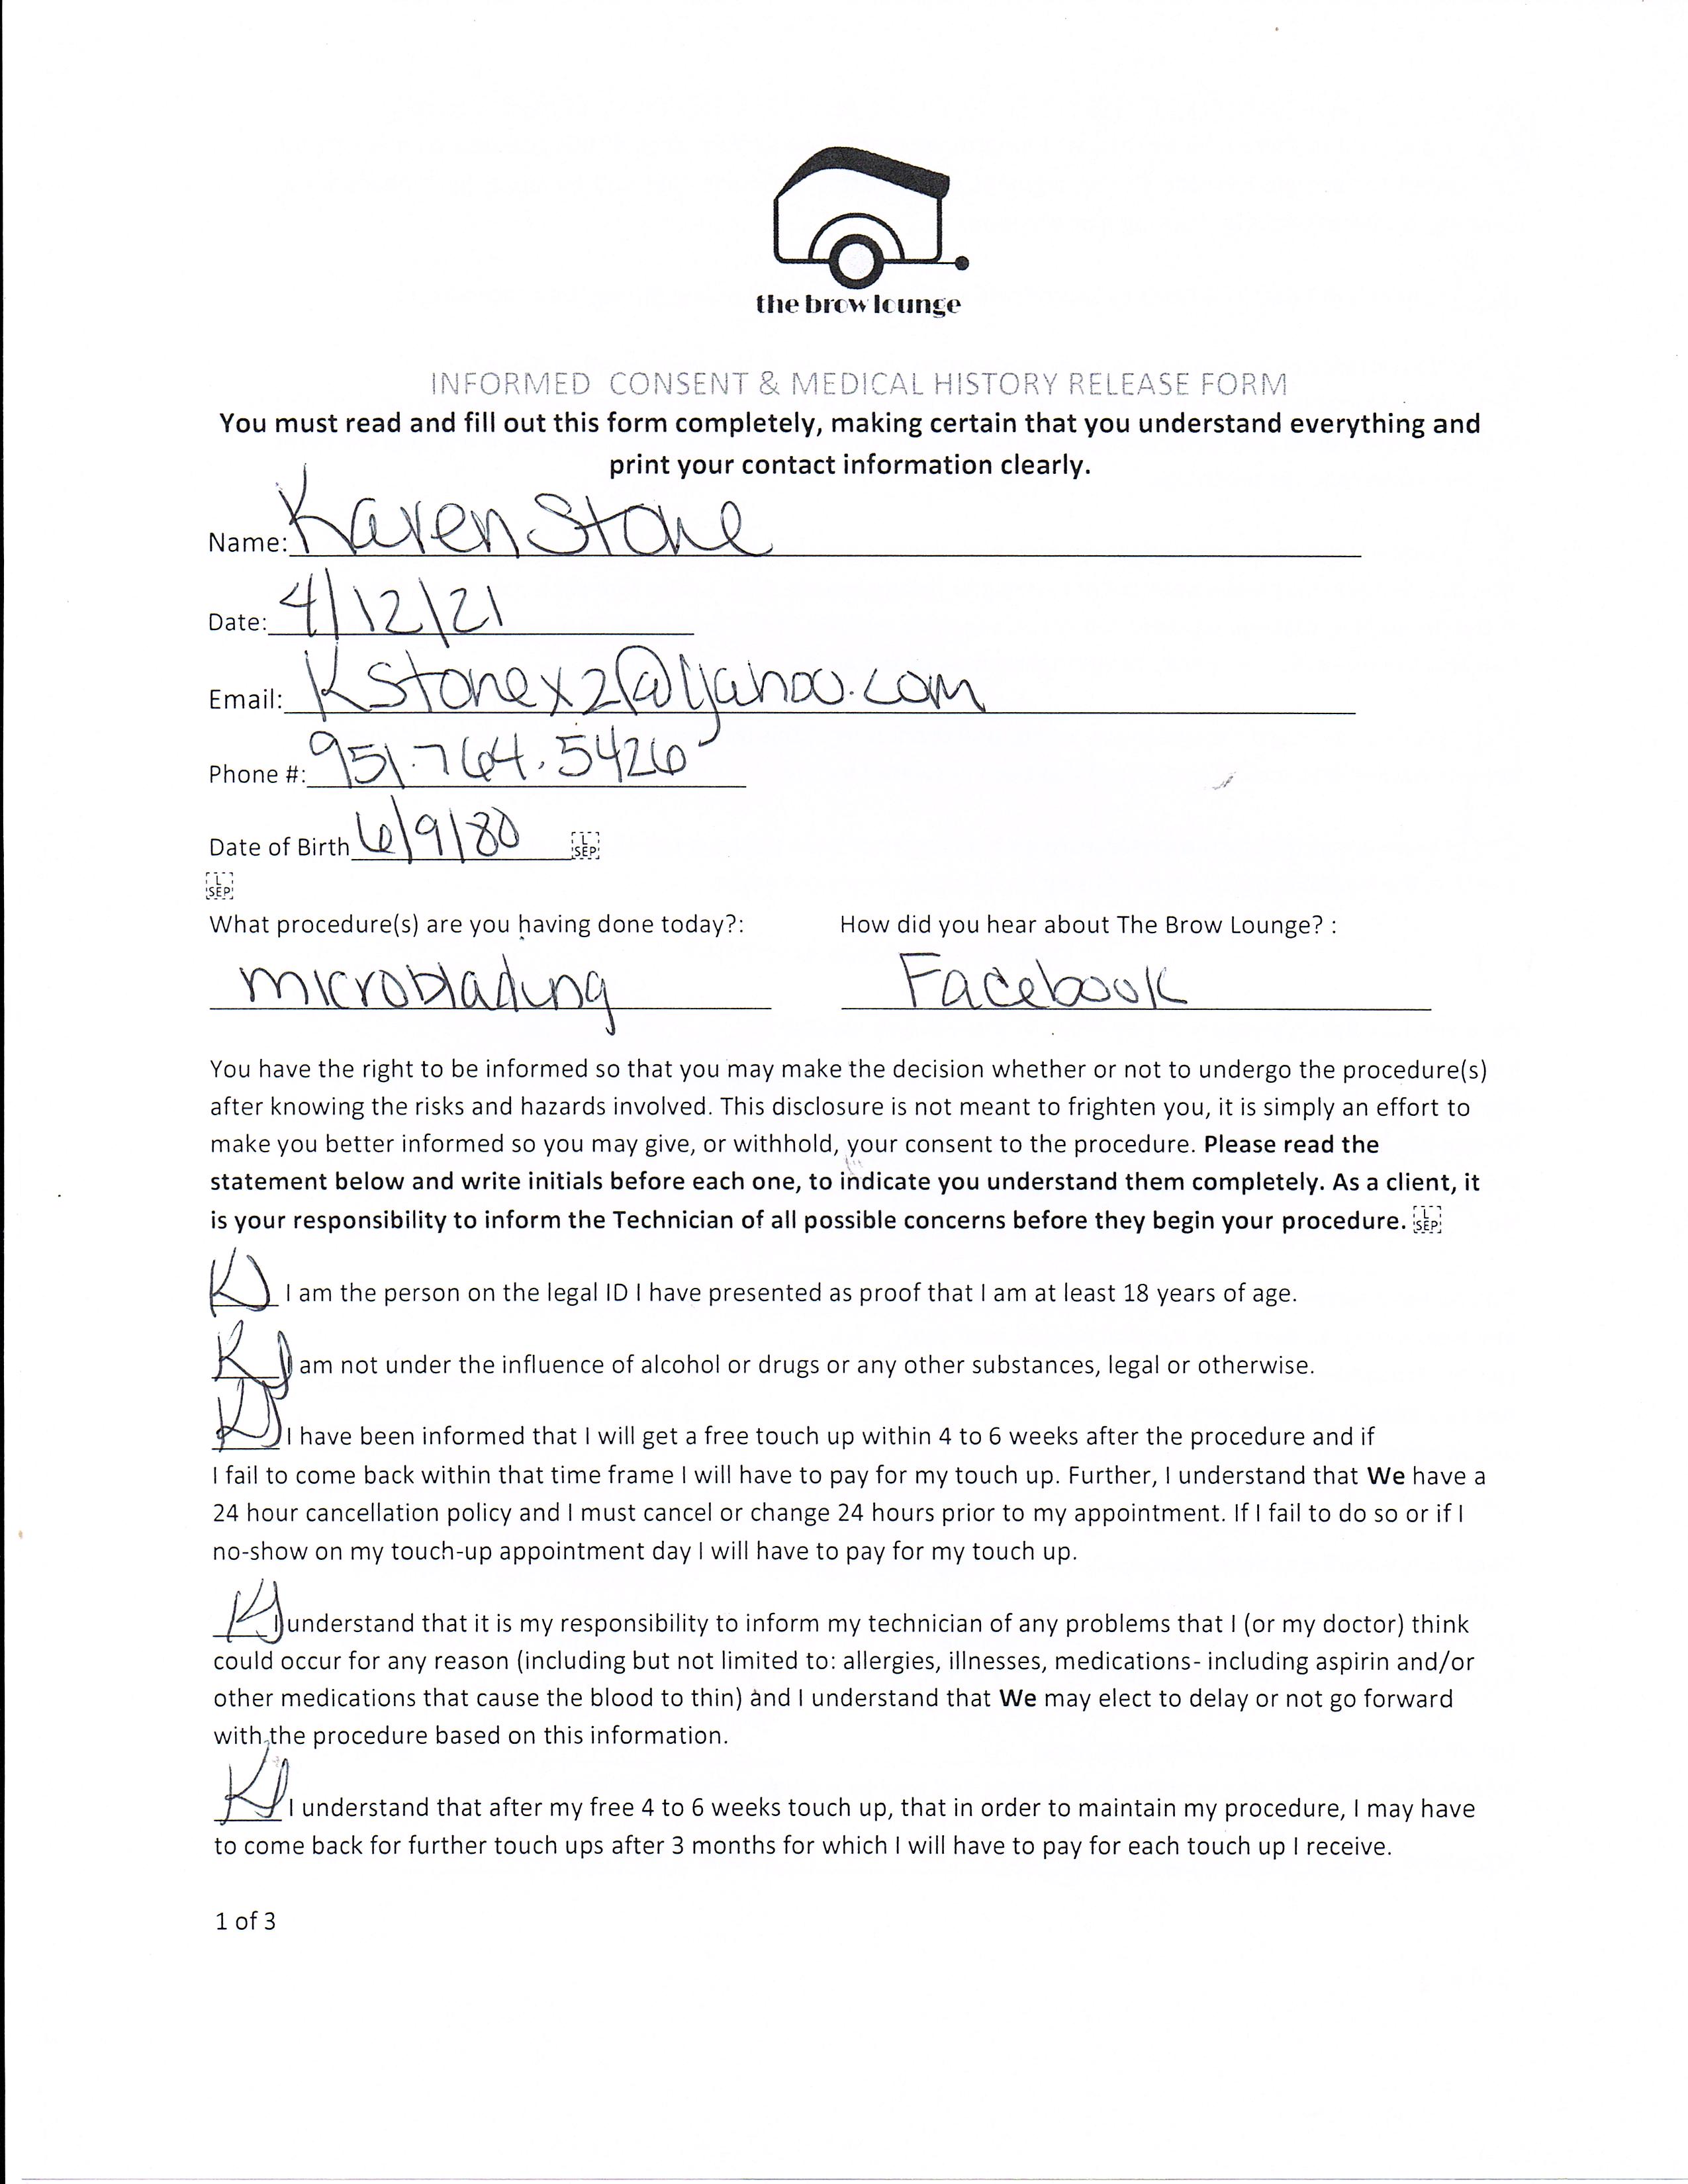 the brow lounge
INFORMED CONSENT & MEDICAL HISTORY RELEASE FORM
You must read and fill out this form completely, making certain that you understand everything and
print your contact information clearly.
Name: Karen Stone
Date: 4/12/21
Email: Kstonex2@yahoo.com
Phone #: 951.764.5426
Date of Birth 6/9/80 L SEP
L SEP
What procedure(s) are you having done today?: How did you hear about The Brow Lounge? :
microblading Facebook
You have the right to be informed so that you may make the decision whether or not to undergo the procedure(s)
after knowing the risks and hazards involved. This disclosure is not meant to frighten you, it is simply an effort to
make you better informed so you may give, or withhold, your consent to the procedure. Please read the
statement below and write initials before each one, to indicate you understand them completely. As a client, it
is your responsibility to inform the Technician of all possible concerns before they begin your procedure. L SEP
KS I am the person on the legal ID I have presented as proof that I am at least 18 years of age.
KS I am not under the influence of alcohol or drugs or any other substances, legal or otherwise.
KS I have been informed that I will get a free touch up within 4 to 6 weeks after the procedure and if
I fail to come back within that time frame I will have to pay for my touch up. Further, I understand that We have a
24 hour cancellation policy and I must cancel or change 24 hours prior to my appointment. If I fail to do so or if I
no-show on my touch-up appointment day I will have to pay for my touch up.
KS I understand that it is my responsibility to inform my technician of any problems that I (or my doctor) think
could occur for any reason (including but not limited to: allergies, illnesses, medications- including aspirin and/or
other medications that cause the blood to thin) and I understand that We may elect to delay or not go forward
with the procedure based on this information.
KS I understand that after my free 4 to 6 weeks touch up, that in order to maintain my procedure, I may have
to come back for further touch ups after 3 months for which I will have to pay for each touch up I receive.
1 of 3